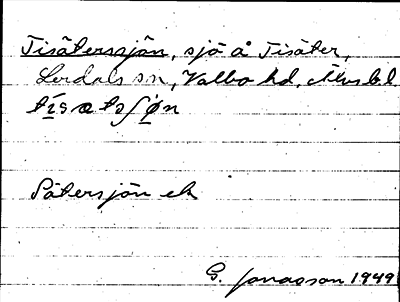 Tisätersjön, sjö å Tisäter,
Lerdals sn, Valbo hd, Älvsb.l.
tísætsʃøn
Sätersjön ek
G. Jonasson 1949